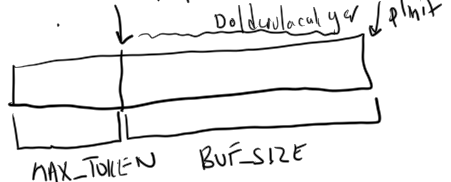 Doldurulacak yer
plimit
MAX_TOKEN
BUF_SIZE